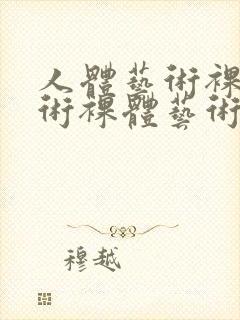 人體藝術裸
術裸體藝術
穆越